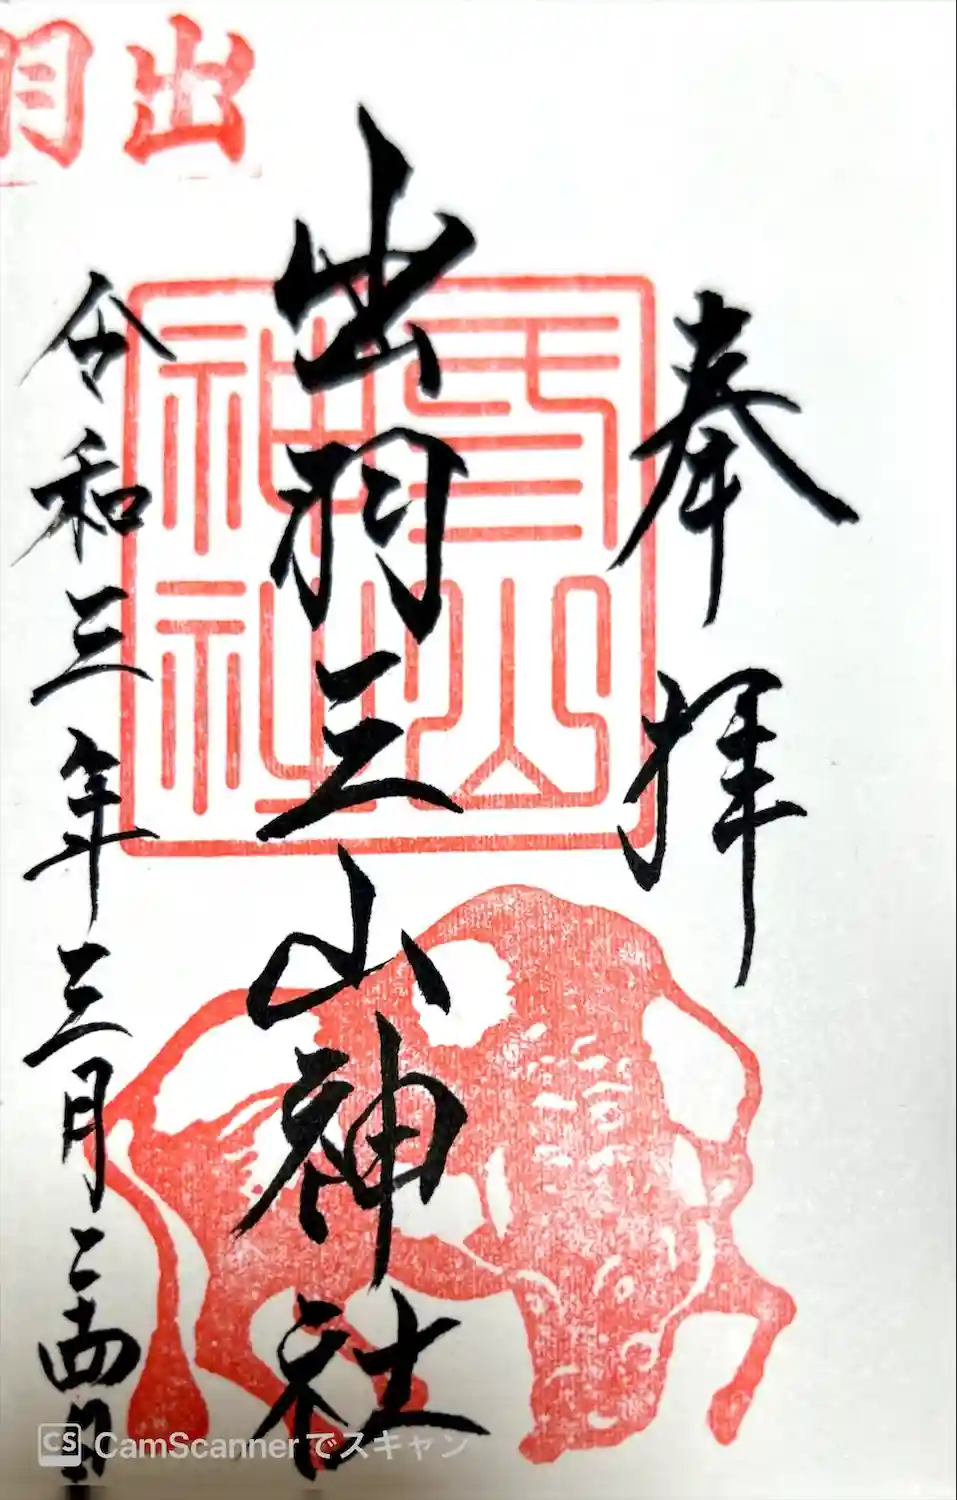 出羽
奉拝
出羽三山神社
山神社
令和三年三月二十四日
CS CamScannerでスキャン